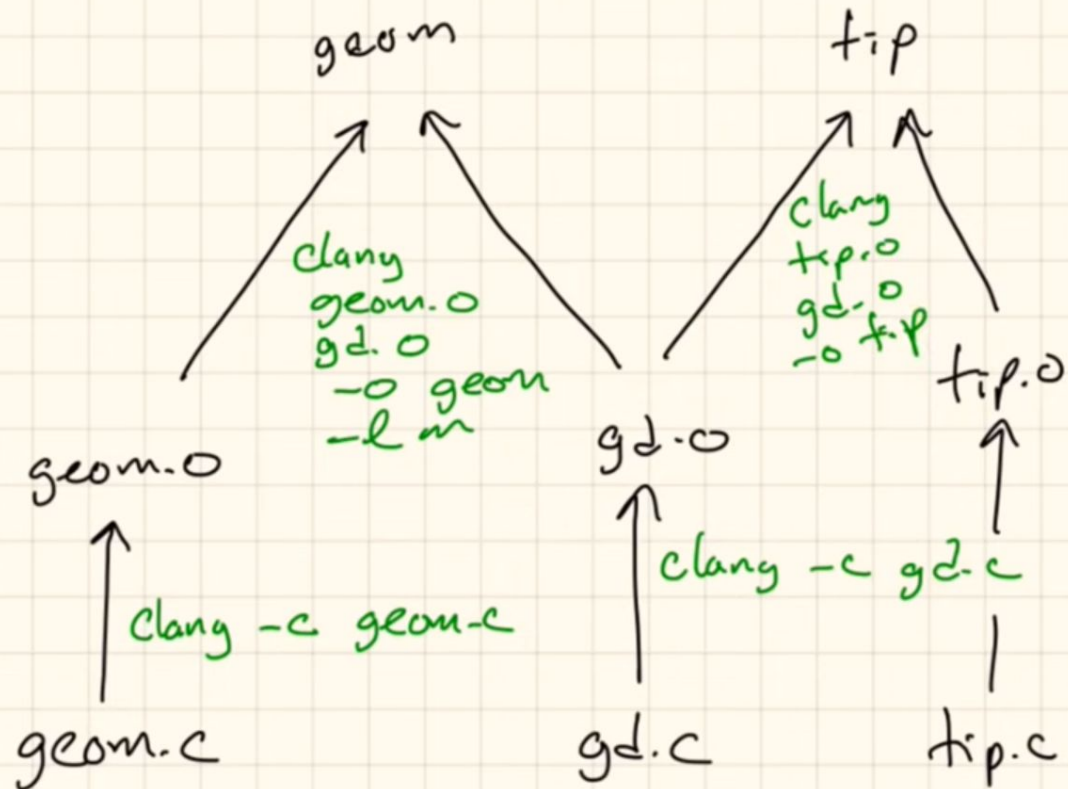 geom
tip
clang
geom.o
gd.o
-o geom
-l m
clang
tip.o
gd.o
-o tip
geom.o
gd.o
tip.o
clang -c geom.c
clang -c gd.c
geom.c
gd.c
tip.c